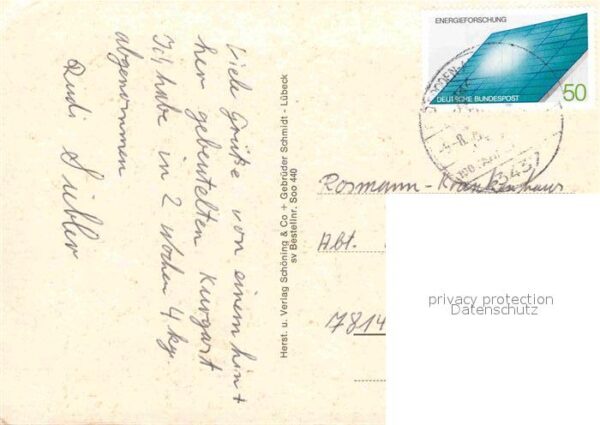 Viele Grüße von einem hin +
her gebeutelten Kurgast
Ich habe in 2 Wochen 4 kg
abgenommen
Rudi
Herst. u. Verlag Schöning & Co + Gebrüder Schmidt - Lübeck
sv Bestellnr. Soo 440
ENERGIEFORSCHUNG
DEUTSCHE BUNDESPOST
50
3437
Rosmann-Krankenhaus
Abt.
7814
privacy protection
Datenschutz